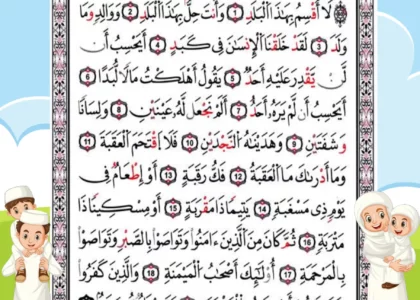 لَا أُقْسِمُ بِهَٰذَا الْبَلَدِ ١ وَأَنتَ حِلٌّ بِهَٰذَا الْبَلَدِ 2 وَوَالِدٍ وَمَا
وَلَدَ 3 لَقَدْ خَلَقْنَا الْإِنسَانَ فِي كَبَدٍ 4 أَيَحْسَبُ أَن
لَّن يَقْدِرَ عَلَيْهِ أَحَدٌ 5 يَقُولُ أَهْلَكْتُ مَالًا لُّبَدًا 6
أَيَحْسَبُ أَن لَّمْ يَرَهُ أَحَدٌ 7 أَلَمْ نَجْعَل لَّهُ عَيْنَيْنِ 8 وَلِسَانًا
وَشَفَتَيْنِ 9 وَهَدَيْنَاهُ النَّجْدَيْنِ 10 فَلَا اقْتَحَمَ الْعَقَبَةَ 11
وَمَا أَدْرَاكَ مَا الْعَقَبَةُ 12 فَكُّ رَقَبَةٍ 13 أَوْ إِطْعَامٌ فِي
يَوْمٍ ذِي مَسْغَبَةٍ 14 يَتِيمًا ذَا مَقْرَبَةٍ 15 أَوْ مِسْكِينًا ذَا
مَتْرَبَةٍ 16 ثُمَّ كَانَ مِنَ الَّذِينَ ءَامَنُوا وَتَوَاصَوْا بِالصَّبْرِ وَتَوَاصَوْا
بِالْمَرْحَمَةِ 17 أُولَٰئِكَ أَصْحَابُ الْمَيْمَنَةِ 18 وَالَّذِينَ كَفَرُوا